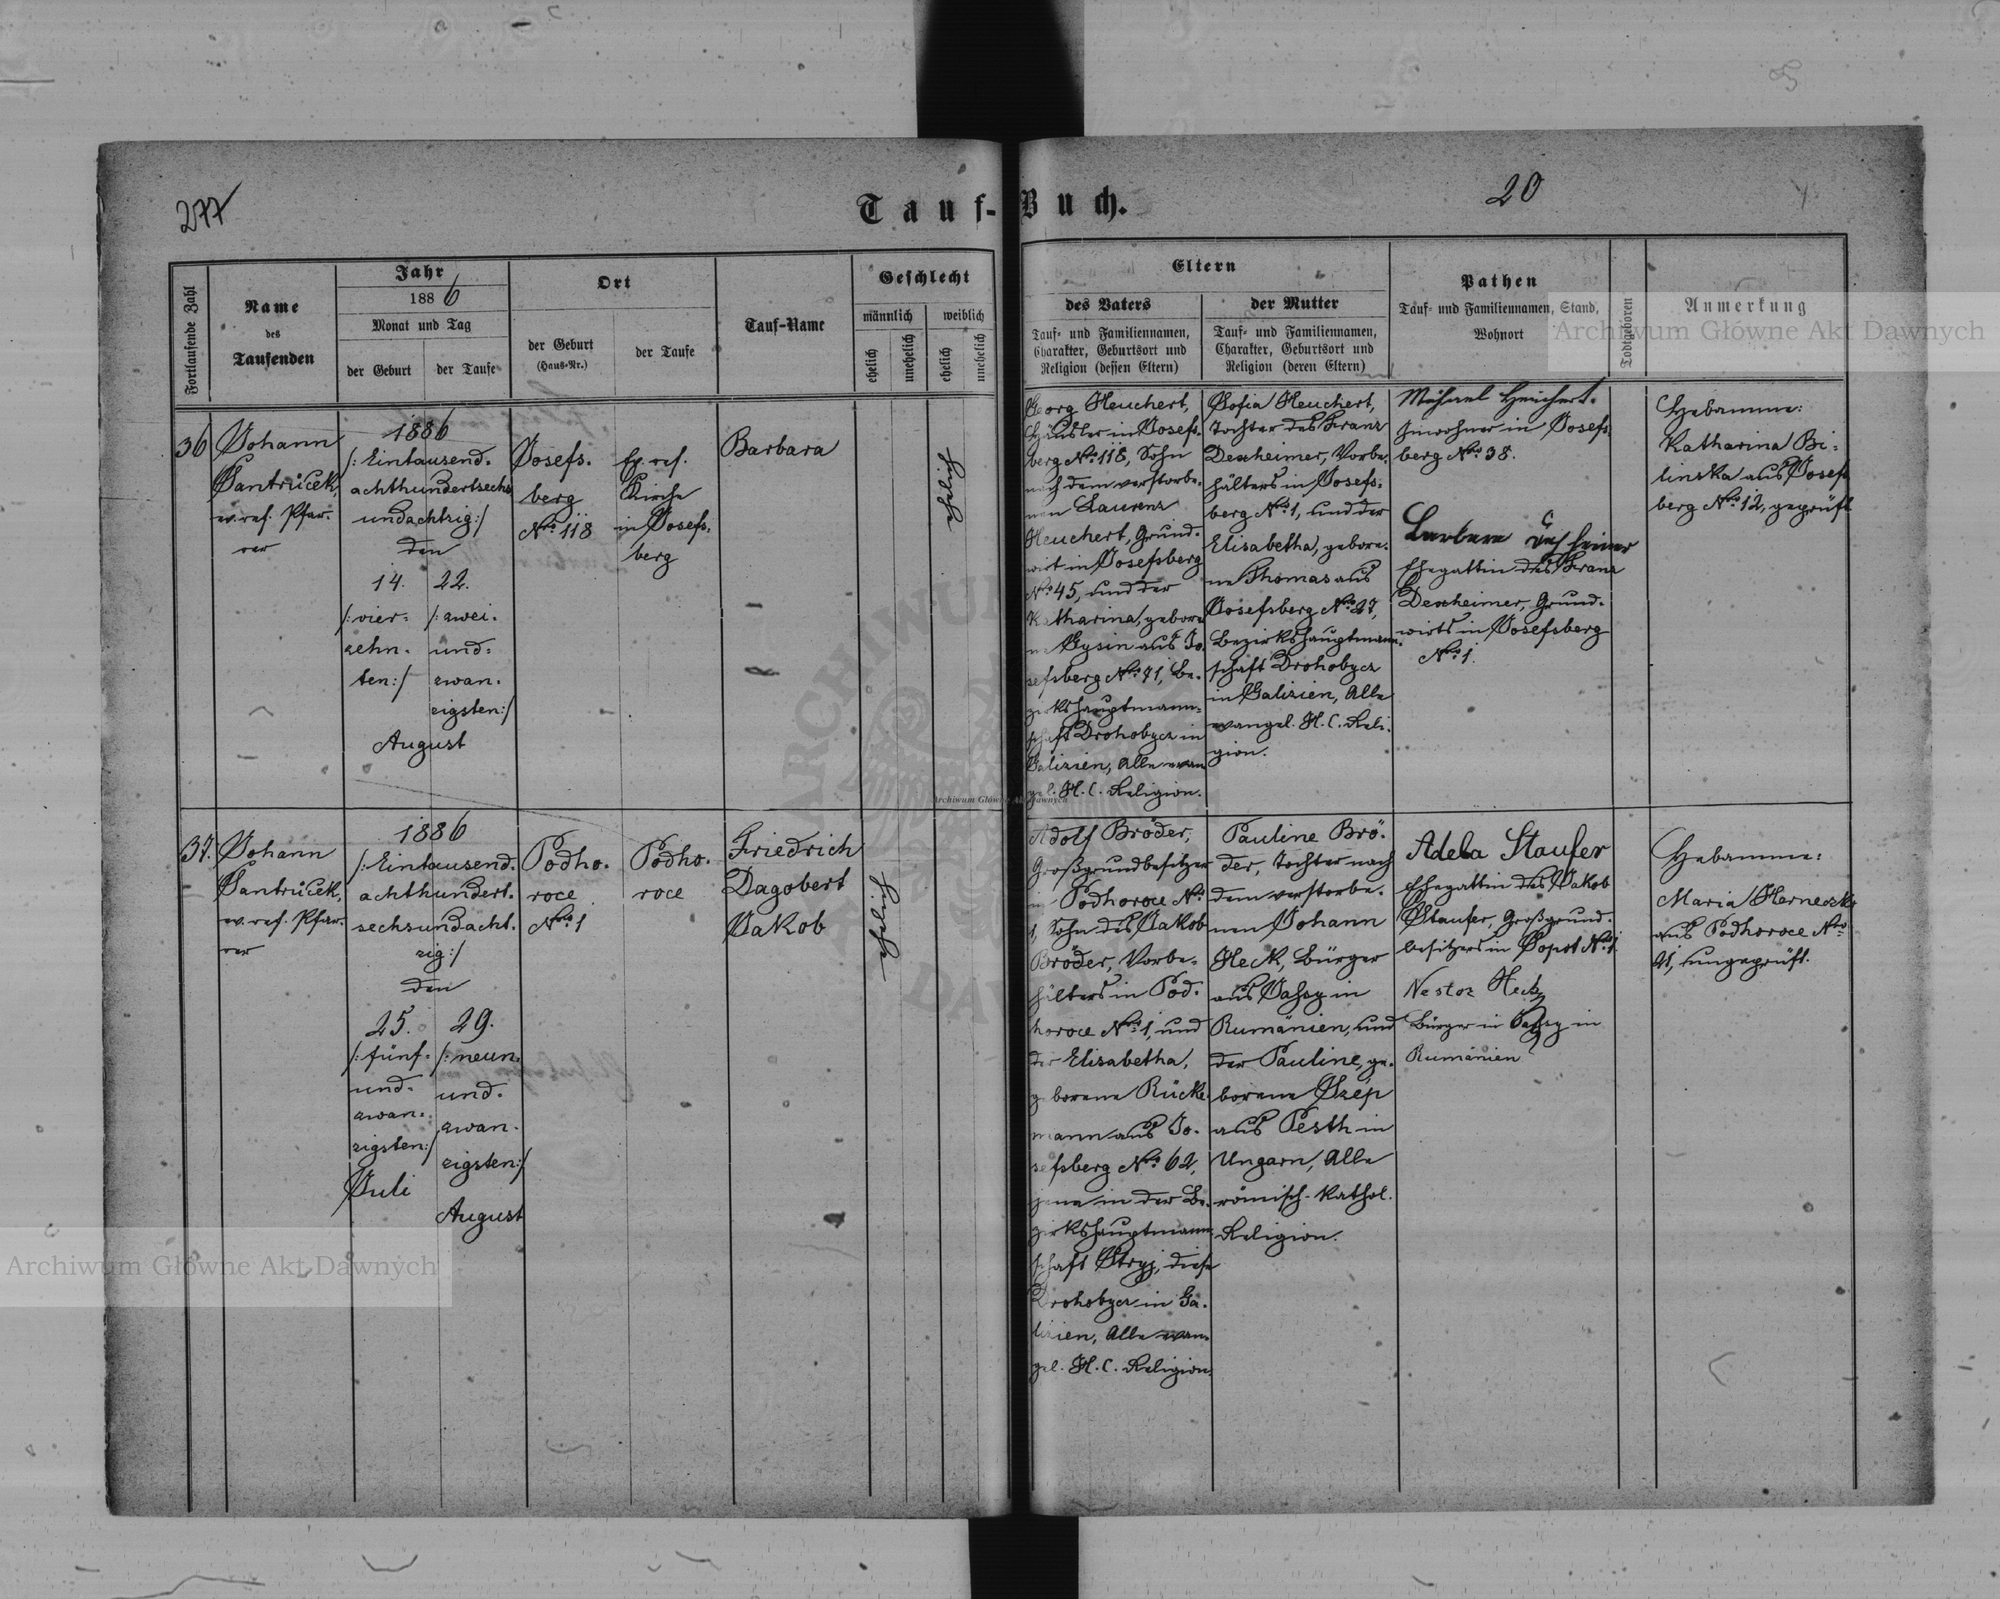 277
Tauf-Buch.
20
Fortlaufende Zahl
Name
des
Taufenden
Jahr
1886
Monat und Tag
der Geburt
der Taufe
Ort
der Geburt
(Haus-Nr.)
der Taufe
Tauf-Name
Geschlecht
männlich
weiblich
ehelich
unehelich
ehelich
unehelich
Eltern
des Vaters
Tauf- und Familiennamen,
Charakter, Geburtsort und
Religion (dessen Eltern)
der Mutter
Tauf- und Familiennamen,
Charakter, Geburtsort und
Religion (deren Eltern)
Pathen
Tauf- und Familiennamen, Stand,
Wohnort
Todtgeboren
Anmerkung
Archiwum Główne Akt Dawnych
36
Johann
Jantrůček,
ev. ref. Pfar-
rer
1886
/: Eintausend-
achthundertsechs
undachtzig :/
den
14.
/: vier-
zehn-
ten :/
22.
/: zwei-
und-
zwan-
zigsten :/
August
Josefs-
berg
Nro 118
Ev. ref.
Kirche
in Josefs-
berg
Barbara
ehelich
Georg Heuchert,
Häusler in Josefs-
berg Nro 118, Sohn
nach dem verstorbe-
nen Laurenz
Heuchert, Grund-
wirt in Josefsberg
Nro 45, und der
Katharina, gebore
ne Gysin aus Jo-
sefsberg Nro 91, Be-
zirkshauptmann-
schaft Drohobycz in
Galizien, Alle evan
gel. H. C. Religion.
Sofia Heuchert,
Tochter des Franz
Dexheimer, Vorbe-
hälters in Josefs-
berg Nro 1, und der
Elisabetha, gebore-
ne Thomas aus
Josefsberg Nro 27,
Bezirkshauptmann-
schaft Drohobycz
in Galizien, Alle
evangel. H. C. Reli-
gion.
Michael Heuchert.
Inwohner in Josefs-
berg Nro 38.
Barbara Dexheimer
Ehegattin des Franz
Dexheimer, Grund-
wirts in Josefsberg
Nro 1.
Hebamme:
Katharina Bi-
linska aus Josefs
berg Nro 12, geprüft
37.
Johann
Jantrůček,
ev. ref. Pfar-
rer
1886
/: Eintausend-
achthundert-
sechsundacht-
zig :/
den
25.
/: fünf-
und-
zwan-
zigsten :/
Juli
29.
/: neun-
und-
zwan-
zigsten :/
August
Podho-
roce
Nro 1
Podho-
roce
Friedrich
Dagobert
Jakob
ehelich
Adolf Bröder,
Großgrundbesitzer
in Podhoroce No
1, Sohn des Jakob
Bröder, Vorbe-
hälters in Pod-
horoce Nro 1, und
der Elisabetha,
geborene Rücke-
mann aus Jo-
sefsberg Nro 62,
jene in der Be-
zirkshauptmann
schaft Stryj, diese
Drohobycz in Ga-
lizien, Alle evan-
gel. H. C. Religion.
Pauline Brö-
der, Tochter nach
dem verstorbe-
nen Johann
Heck, Bürger
aus Jassy in
Rumänien, und
der Pauline, ge-
borene Szép
aus Pesth in
Ungarn, Alle
römisch-kathol.
Religion.
Adela Staufer
Ehegattin des Jakob
Staufer, Großgrund-
besitzers in Sopot No 1.
Nestor Heck,
Bürger in Jassy in
Rumänien
Hebamme:
Maria Hernecka
aus Podhoroce Nro
21, ungeprüft.
Archiwum Główne Akt Dawnych
Archiwum Główne Akt Dawnych